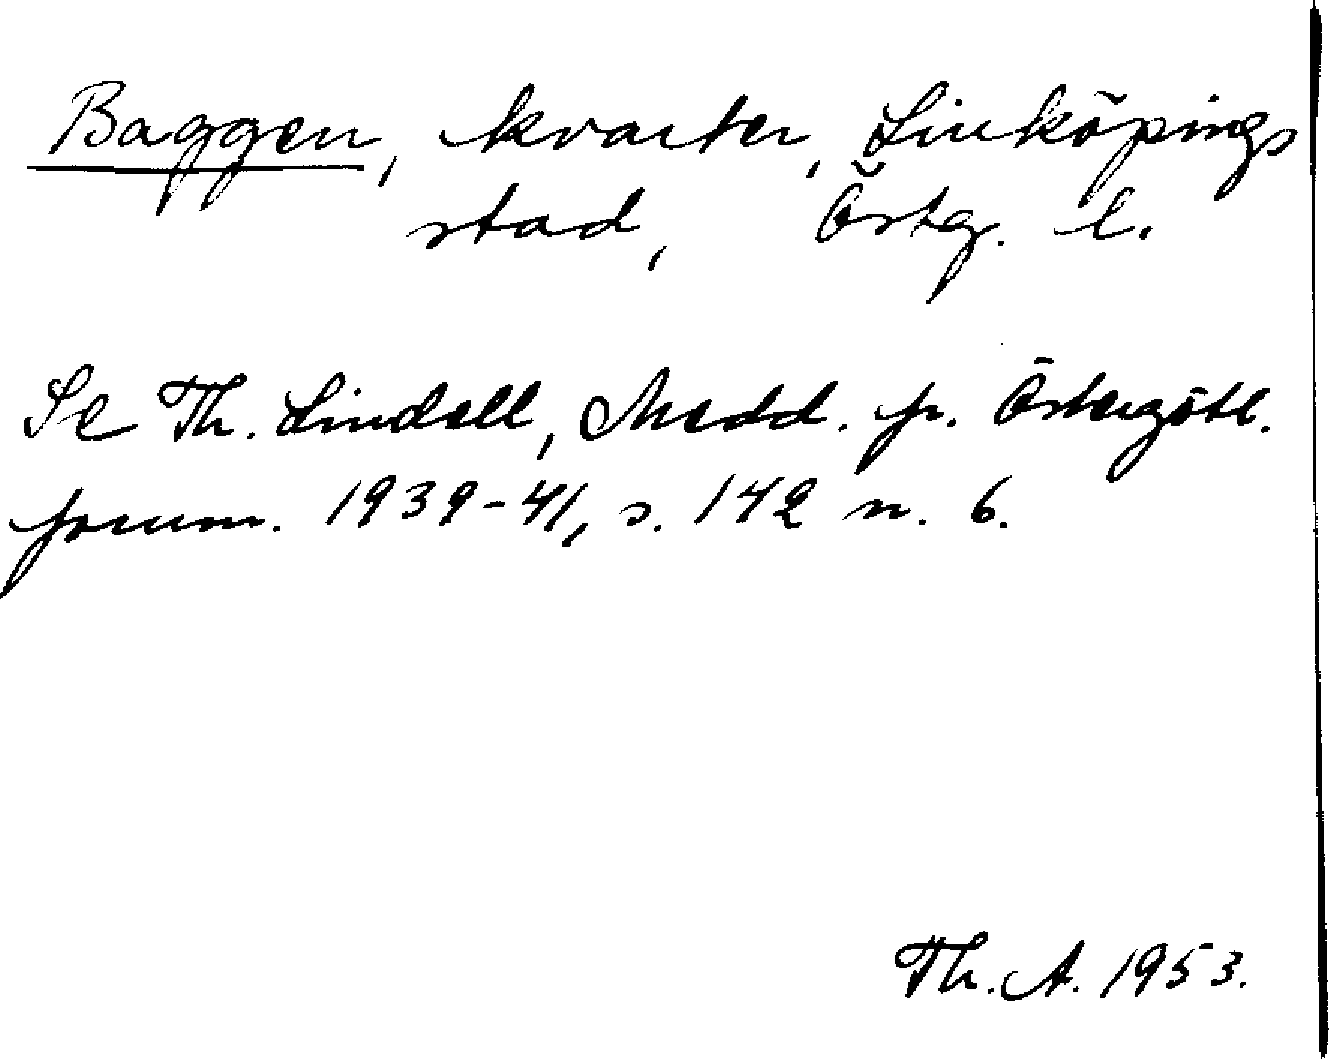 Baggen, kvarter, Linköpings
stad, Östg. l.
Se Th. Lindell, Medd. fr. Östergötl.
fornm. 1939-41, s. 142 n. 6.
Th. A. 1953.